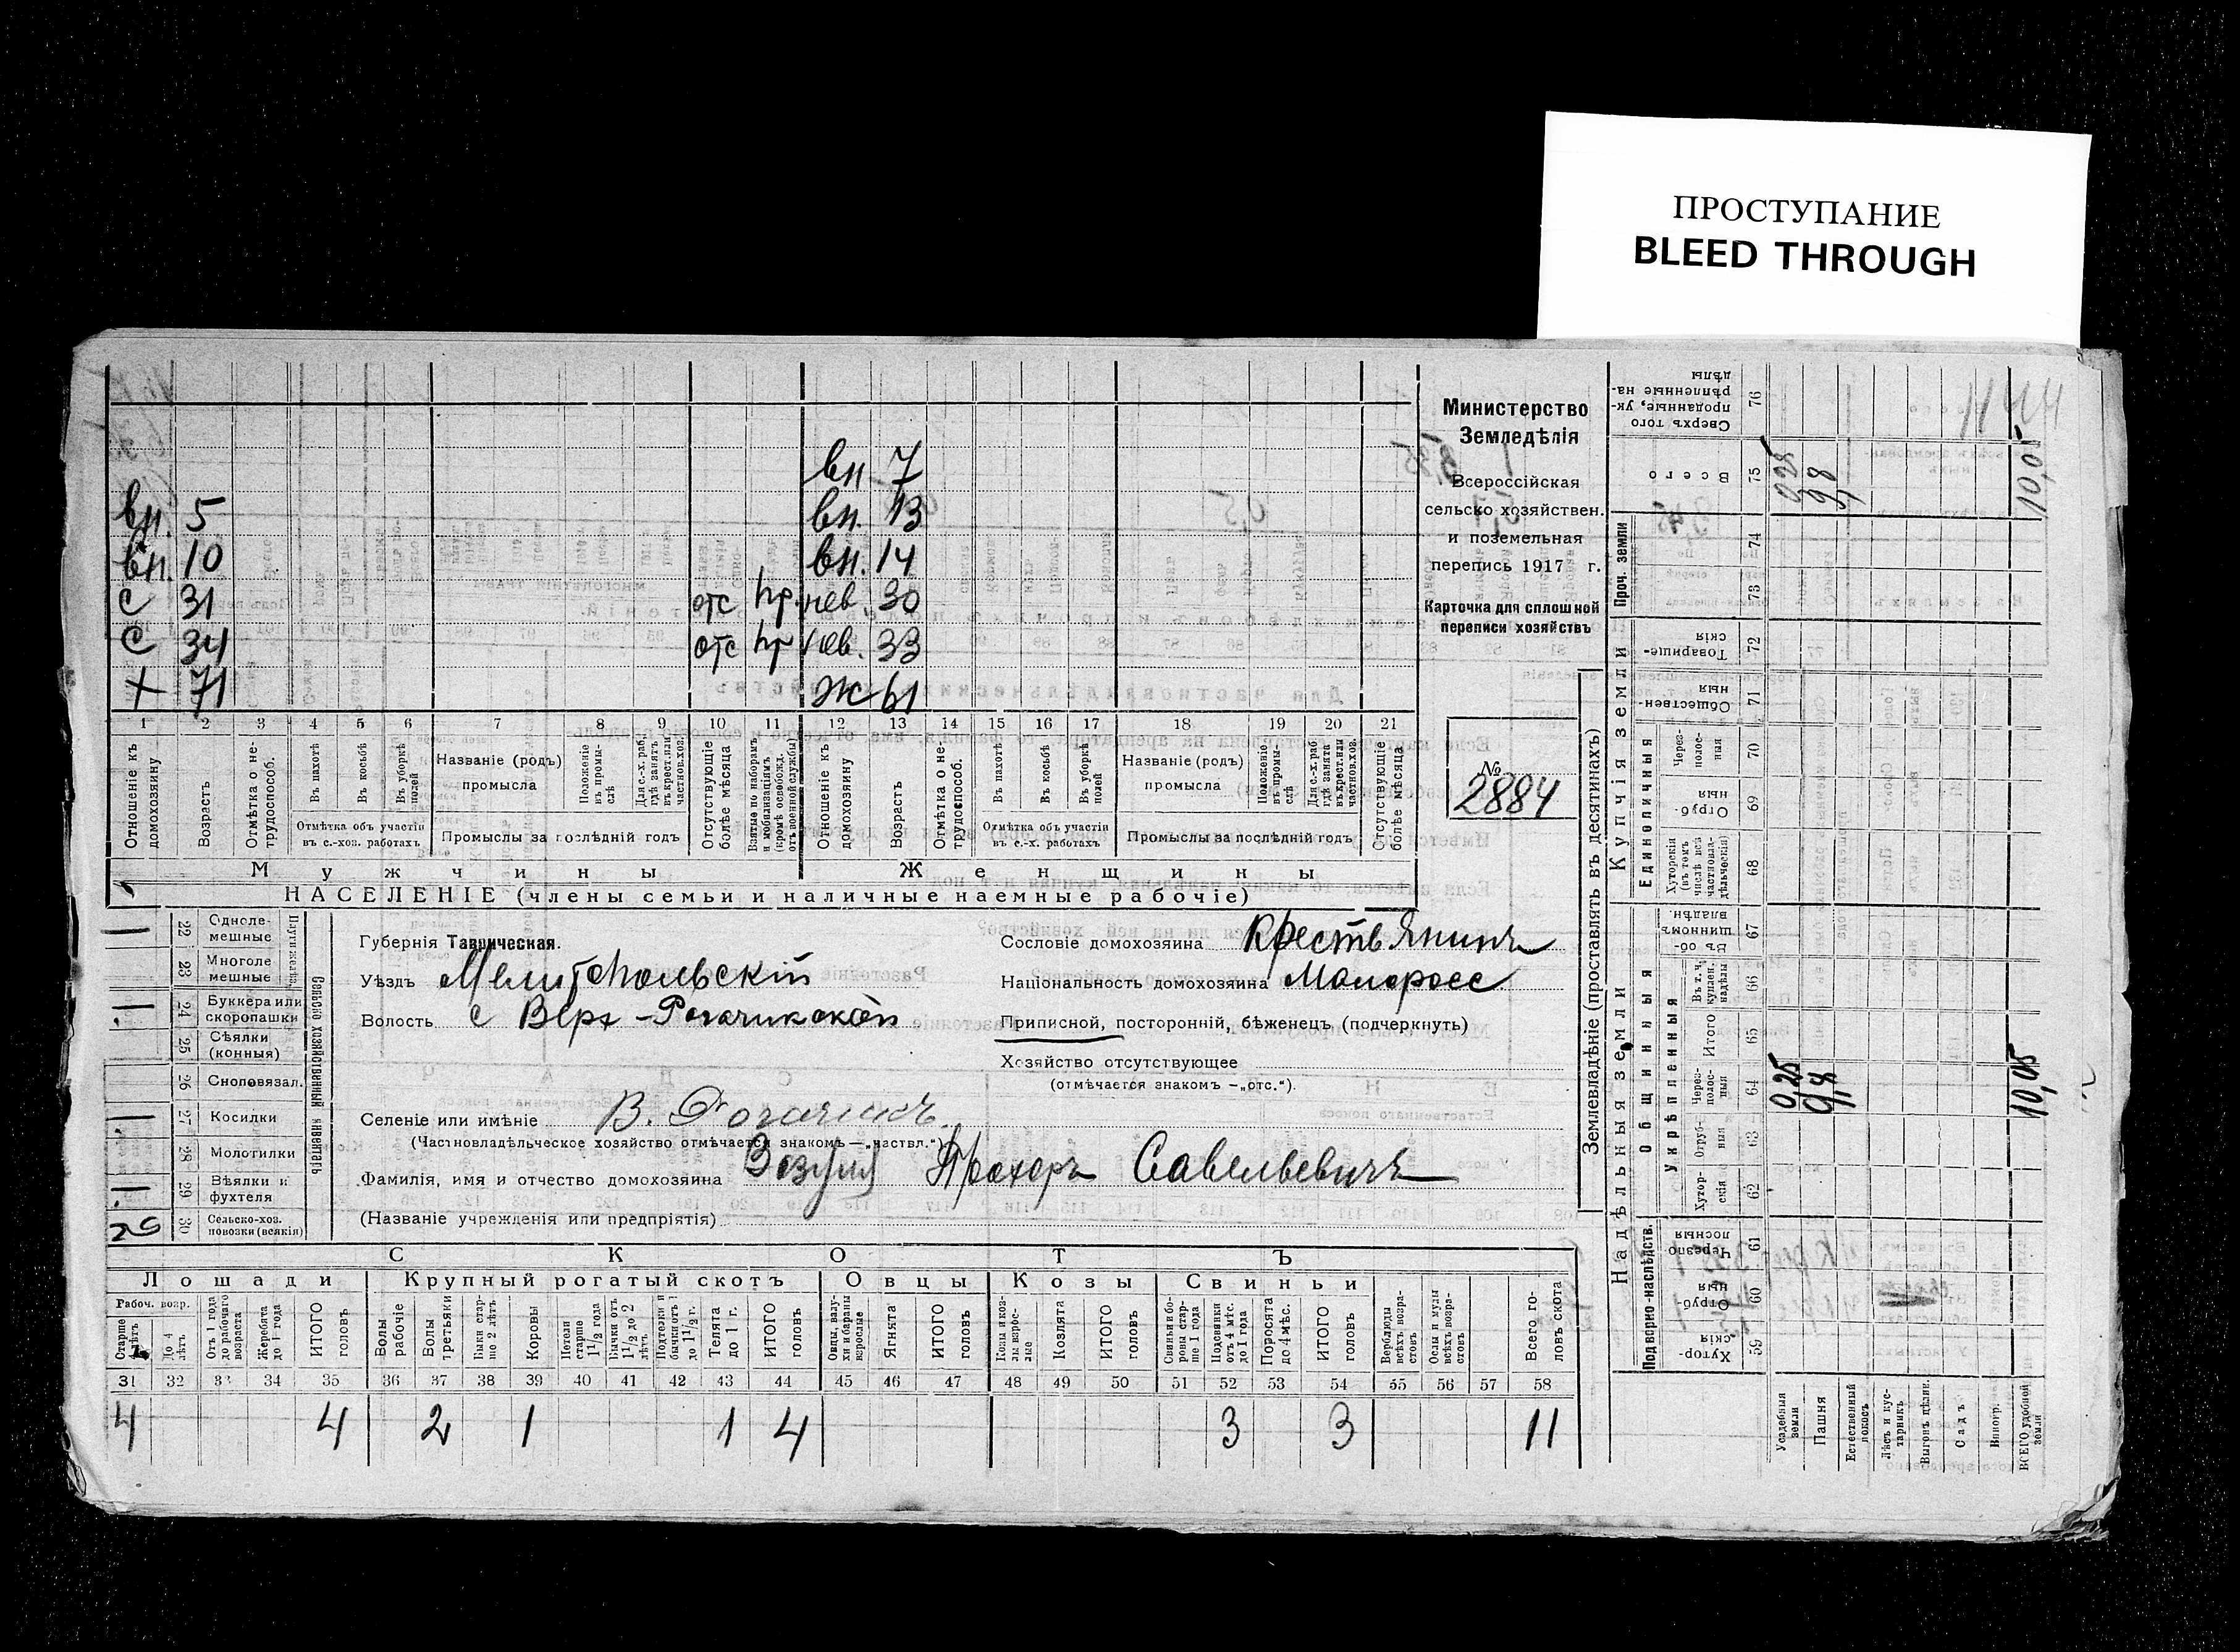 ПРОСТУПАНИЕ
BLEED THROUGH
вн 7
вн. 5 вн. 13
вн. 10 вн. 14
с 31 отс нев. 30
с 34 отс нев. 33
х 71 ж 61
1 2 3 4 5 6 7 8 9 10 11 12 13 14 15 16 17 18 19 20 21
Отношеніе къ домохозяину.
Возрастъ
Отмѣтка о не-трудоспособ.
Въ пахотѣ
Въ косьбѣ
Въ уборкѣ полей
Отмѣтка объ участіи въ с.-хоз. работахъ
Названіе (родъ) промысла
Положеніе въ промы-слѣ
Для с.-х. раб. гдѣ занятъ въ крест. или частнов. хоз.
Промыслы за послѣдній годъ
Отсутствующіе болѣе мѣсяца
Взятые по наборамъ и мобилизаціямъ (кромѣ освобожд. отъ военной службы)
Отношеніе къ домохозяину
Возрастъ
Отмѣтка о не-трудоспособ.
Въ пахотѣ
Въ косьбѣ
Въ уборкѣ полей
Отмѣтка объ участіи въ с.-х. работахъ
Названіе (родъ) промысла
Положеніе въ промы-слѣ
Для с.-х. раб. гдѣ занята въ крест. или частнов. хоз.
Промыслы за послѣдній годъ
Отсутствующіе болѣе мѣсяца
Мужчины Женщины
НАСЕЛЕНІЕ (члены семьи и наличные наемные рабочіе)
Министерство
Земледѣлія
Всероссійская
сельско хозяйствен.
и поземельная
перепись 1917 г.
Карточка для сплошной
переписи хозяйствъ
№
2884
22 Одноле-мешные
23 Многоле мешные
24 Буккера или скоропашки
25 Сѣялки (конныя)
26 Сноповязал.
27 Косилки
28 Молотилки
29 Вѣялки и фухтеля
30 Сельско-хоз. повозки (всякія)
Сельско хозяйственный инвентарь
Губернія Таврическая.
Уѣздъ Мелитопольскій
Волость с Верх-Рогачикской
Сословіе домохозяина Крестьянинъ
Національность домохозяина Малоросс
Приписной, посторонній, бѣженецъ (подчеркнуть)
Хозяйство отсутствующее
(отмѣчается знакомъ —„отс.“).
Селеніе или имѣніе В. Рогачикъ.
(Частновладѣльческое хозяйство отмѣчается знакомъ —„частвл.“)
Фамилія, имя и отчество домохозяина Прохоръ Савельевичъ
(Названіе учрежденія или предпріятія)
СКОТЪ
Лошади Крупный рогатый скотъ Овцы Козы Свиньи
Рабоч. возр.
Старше лѣтъ
До 4 лѣтъ
Отъ 1 года до рабочаго возраста
Жеребята до 1 года
ИТОГО головъ
Волы рабочіе
Волы третьяки
Быки стар-ше 2 лѣтъ
Коровы
Нетели старше 1 1/2 года
Бычки отъ 1 1/2 до 2 лѣтъ
Подтелки и бычки отъ 1 до 1 1/2 г.
Телята до 1 г.
ИТОГО головъ
Овцы, валу-хи и бараны взрослые
Ягнята
ИТОГО головъ
Козы и коз-лы взрос-лые
Козлята
ИТОГО головъ
Свиньи и бо-ровы стар-ше 1 года
Подсвинки отъ 4 мѣс. до 1 года
Поросята до 4 мѣс.
ИТОГО головъ
Верблюды всѣхъ возра-стовъ
Ослы и мулы всѣхъ возра-стовъ
Всего го-ловъ скота
31 32 33 34 35 36 37 38 39 40 41 42 43 44 45 46 47 48 49 50 51 52 53 54 55 56 57 58
4 4 2 1 1 4 3 3 11
Землевладѣніе (проставлять въ десятинахъ)
Надѣльныя земли Купчія земли
Проч. земли
Подворно-наслѣдств. Общинныя Единоличныя
Укрѣпленныя
Хутор-скія 59
Отруб-ныя 60
Черезпо-лосныя 61
Хутор-скія 62
Отруб-ныя 63
Через-полос-ныя 64
Итого 65
Въ т. ч. купчен. надѣлы 66
Въ об-щинномъ владѣн. 67
Хуторскія (въ томъ числѣ всѣ частновла-дѣльческія) 68
Отруб-ныя 69
Через-полос-ныя 70
Обществен-ныя 71
Товарище-скія 72
73
74
Всего 75
Сверхъ того проданные, ук-рѣпленные на-дѣлы 76
Усадебныя земли 0,25
Пашня 9,8
Естественный покосъ
Лѣсъ и кус-тарникъ
Выгонъ цѣлин.
Садъ
Виногр.
ВСЕГО удобной земли 10,05 10,05